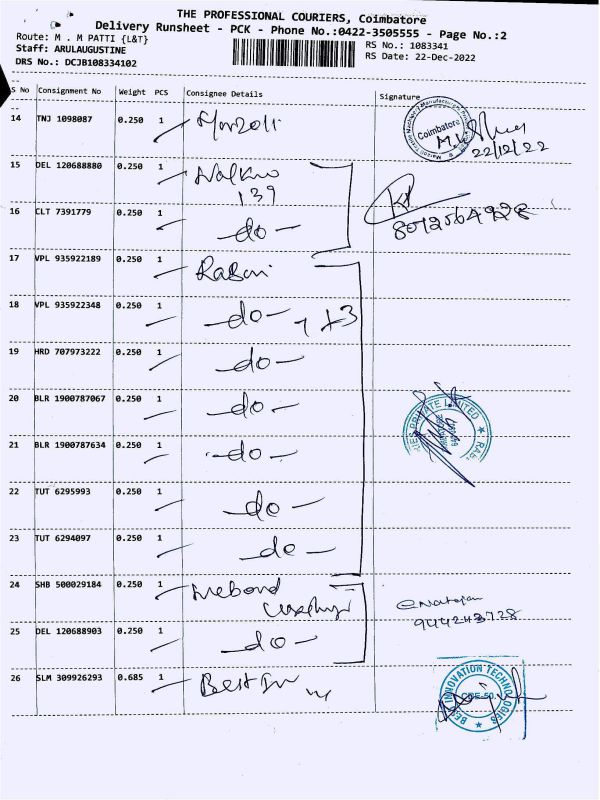 THE PROFESSIONAL COURIERS, Coimbatore
Delivery Runsheet - PCK - Phone No.:0422-3505555 - Page No.:2
Route: M . M PATTI {L&T}
RS No.: 1083341
Staff: ARULAUGUSTINE
RS Date: 22-Dec-2022
DRS No.: DCJB108334102
S No Consignment No Weight PCS Consignee Details Signature
14 TNJ 1098087 0.250 1
Coimbatore
22/12/22
15 DEL 120688880 0.250 1
139
16 CLT 7391779 0.250 1 -do-
17 VPL 935922189 0.250 1
18 VPL 935922348 0.250 1 -do-
19 HRD 707973222 0.250 1 -do-
20 BLR 1900787067 0.250 1 -do-
PRIVATE LIMITED
21 BLR 1900787634 0.250 1 -do-
22 TUT 6295993 0.250 1 -do-
23 TUT 6294097 0.250 1 -do-
24 SHB 500029184 0.250 1
25 DEL 120688903 0.250 1 -do-
26 SLM 309926293 0.685 1 Best In
BEST INNOVATION TECHNOLOGIES